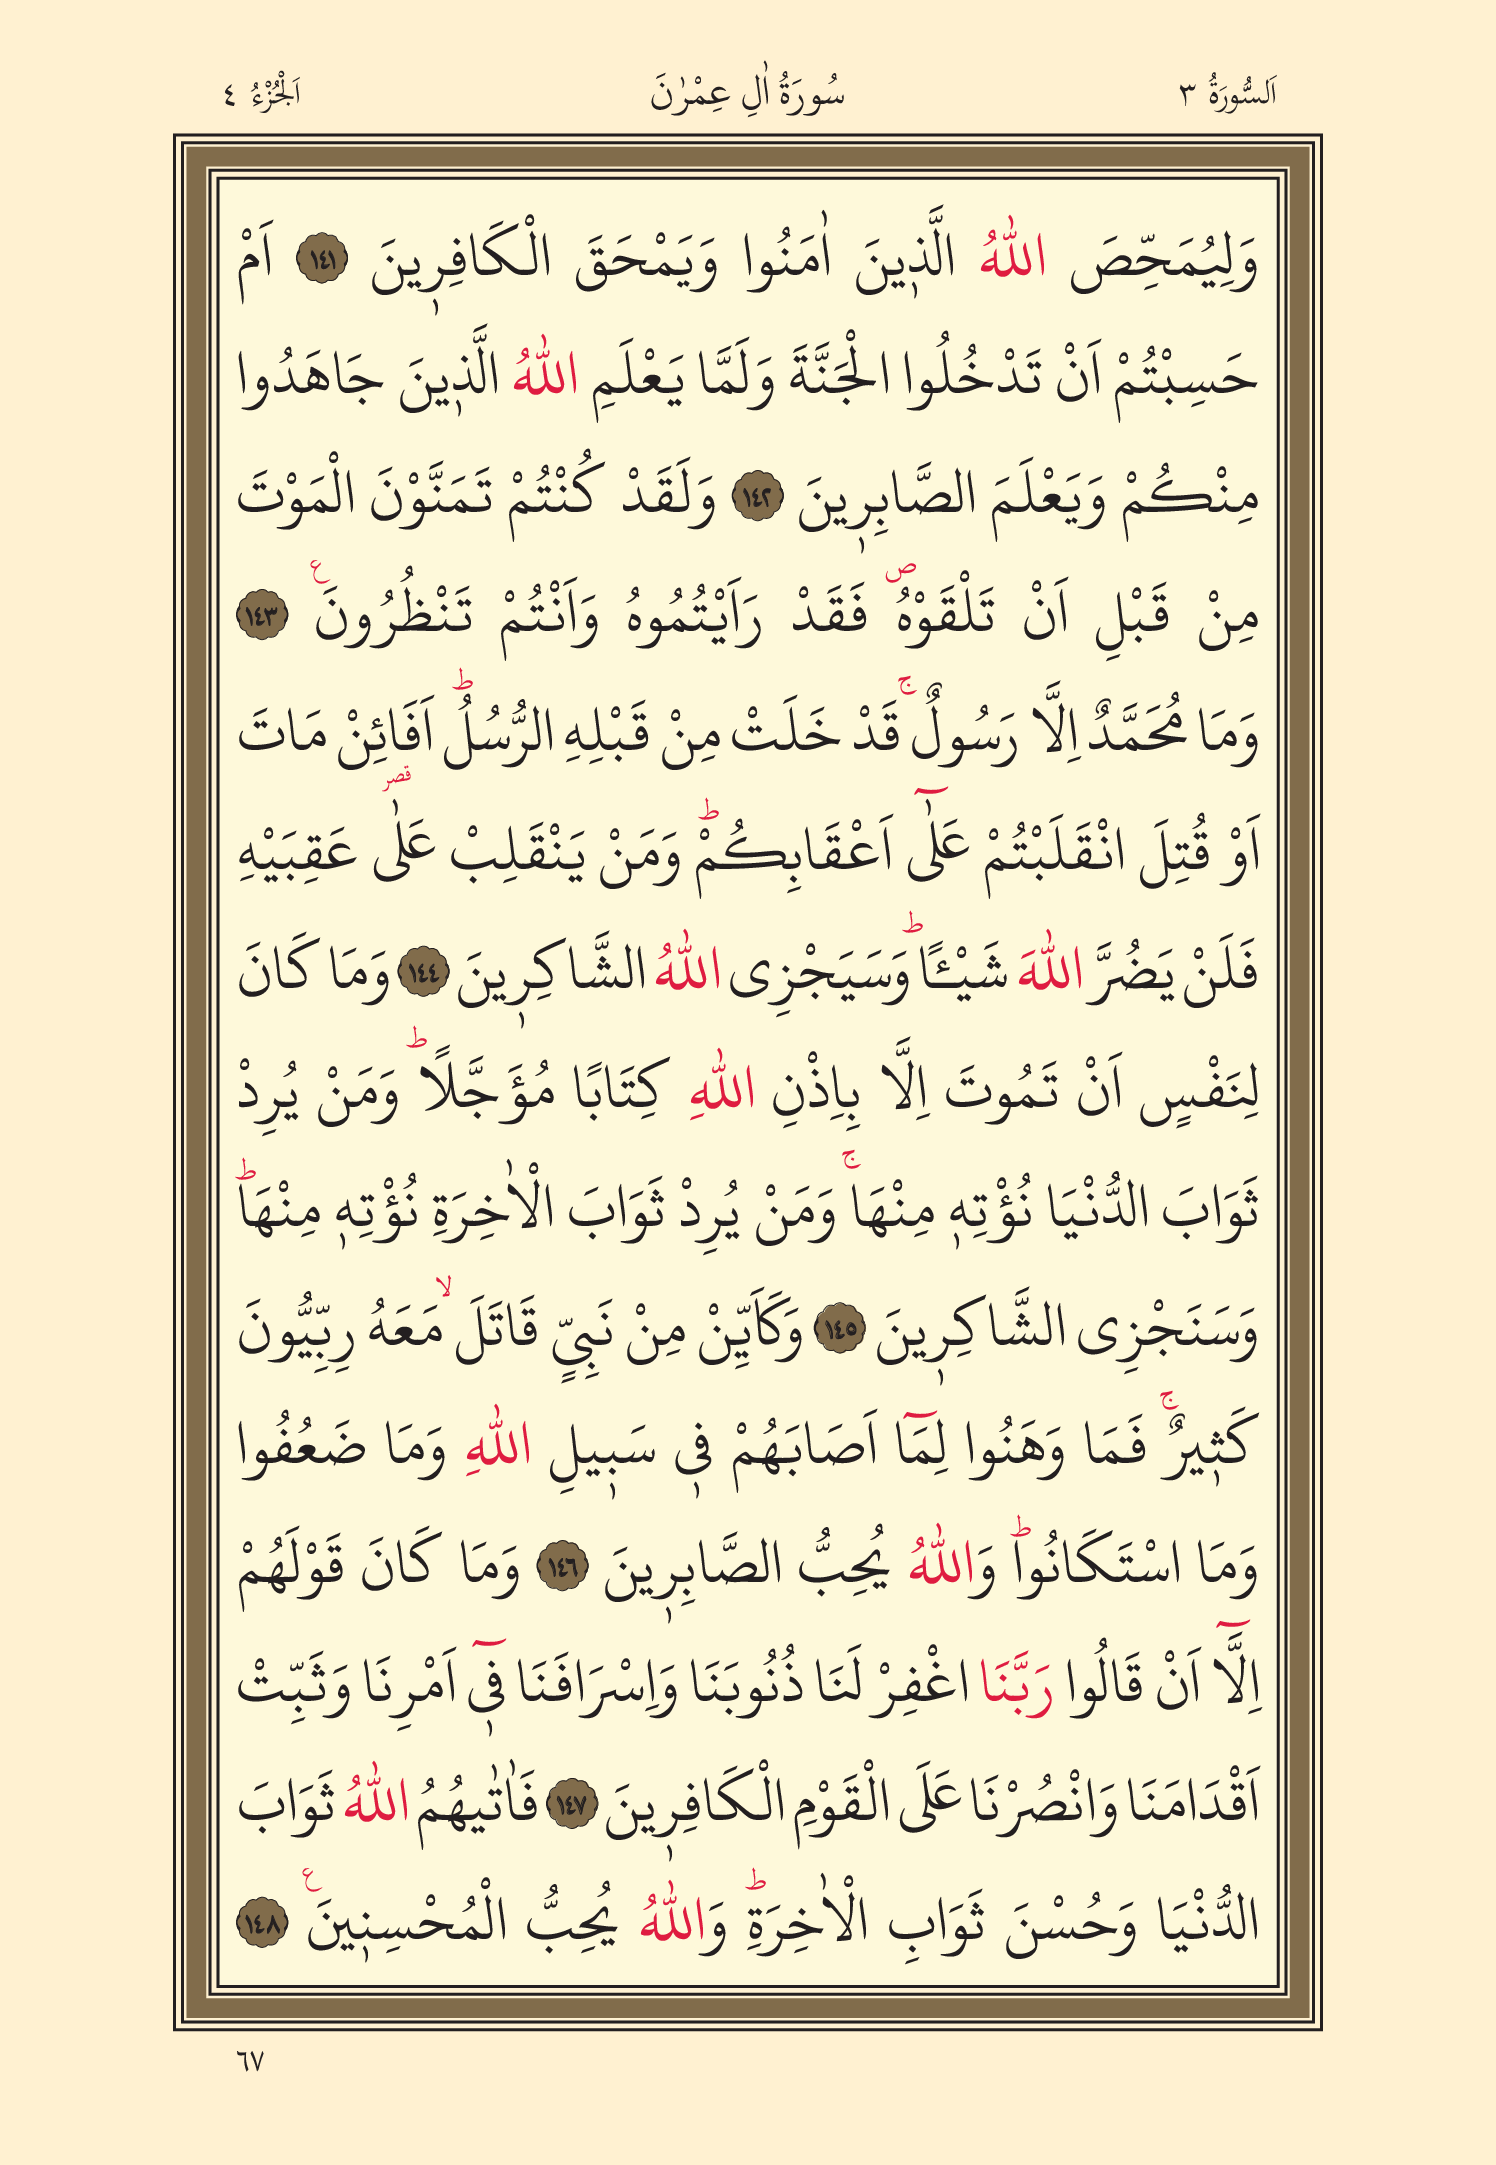 اَلسُّورَةُ ٣ سُورَةُ اٰلِ عِمْرٰنَ اَلْجُزْءُ ٤
وَلِيُمَحِّصَ اللّٰهُ الَّذ۪ينَ اٰمَنُوا وَيَمْحَقَ الْكَافِر۪ينَ ﴿١٤١﴾ اَمْ
حَسِبْتُمْ اَنْ تَدْخُلُوا الْجَنَّةَ وَلَمَّا يَعْلَمِ اللّٰهُ الَّذ۪ينَ جَاهَدُوا
مِنْكُمْ وَيَعْلَمَ الصَّابِر۪ينَ ﴿١٤٢﴾ وَلَقَدْ كُنْتُمْ تَمَنَّوْنَ الْمَوْتَ
مِنْ قَبْلِ اَنْ تَلْقَوْهُۖ فَقَدْ رَاَيْتُمُوهُ وَاَنْتُمْ تَنْظُرُونَ۟ ﴿١٤٣﴾
وَمَا مُحَمَّدٌ اِلَّا رَسُولٌۚ قَدْ خَلَتْ مِنْ قَبْلِهِ الرُّسُلُۜ اَفَائِنْ مَاتَ
اَوْ قُتِلَ انْقَلَبْتُمْ عَلٰٓى اَعْقَابِكُمْۜ وَمَنْ يَنْقَلِبْ عَلٰى قصر عَقِبَيْهِ
فَلَنْ يَضُرَّ اللّٰهَ شَيْـًٔاۜ وَسَيَجْزِى اللّٰهُ الشَّاكِر۪ينَ ﴿١٤٤﴾ وَمَا كَانَ
لِنَفْسٍ اَنْ تَمُوتَ اِلَّا بِاِذْنِ اللّٰهِ كِتَابًا مُؤَجَّلًاۜ وَمَنْ يُرِدْ
ثَوَابَ الدُّنْيَا نُؤْتِه۪ مِنْهَاۚ وَمَنْ يُرِدْ ثَوَابَ الْاٰخِرَةِ نُؤْتِه۪ مِنْهَاۜ
وَسَنَجْزِى الشَّاكِر۪ينَ ﴿١٤٥﴾ وَكَاَيِّنْ مِنْ نَبِيٍّ قَاتَلَۙ مَعَهُ رِبِّيُّونَ
كَث۪يرٌۚ فَمَا وَهَنُوا لِمَٓا اَصَابَهُمْ ف۪ى سَب۪يلِ اللّٰهِ وَمَا ضَعُفُوا
وَمَا اسْتَكَانُواۜ وَاللّٰهُ يُحِبُّ الصَّابِر۪ينَ ﴿١٤٦﴾ وَمَا كَانَ قَوْلَهُمْ
اِلَّٓا اَنْ قَالُوا رَبَّنَا اغْفِرْ لَنَا ذُنُوبَنَا وَاِسْرَافَنَا ف۪ٓى اَمْرِنَا وَثَبِّتْ
اَقْدَامَنَا وَانْصُرْنَا عَلَى الْقَوْمِ الْكَافِر۪ينَ ﴿١٤٧﴾ فَاٰتٰيهُمُ اللّٰهُ ثَوَابَ
الدُّنْيَا وَحُسْنَ ثَوَابِ الْاٰخِرَةِۜ وَاللّٰهُ يُحِبُّ الْمُحْسِن۪ينَ۟ ﴿١٤٨﴾
٦٧